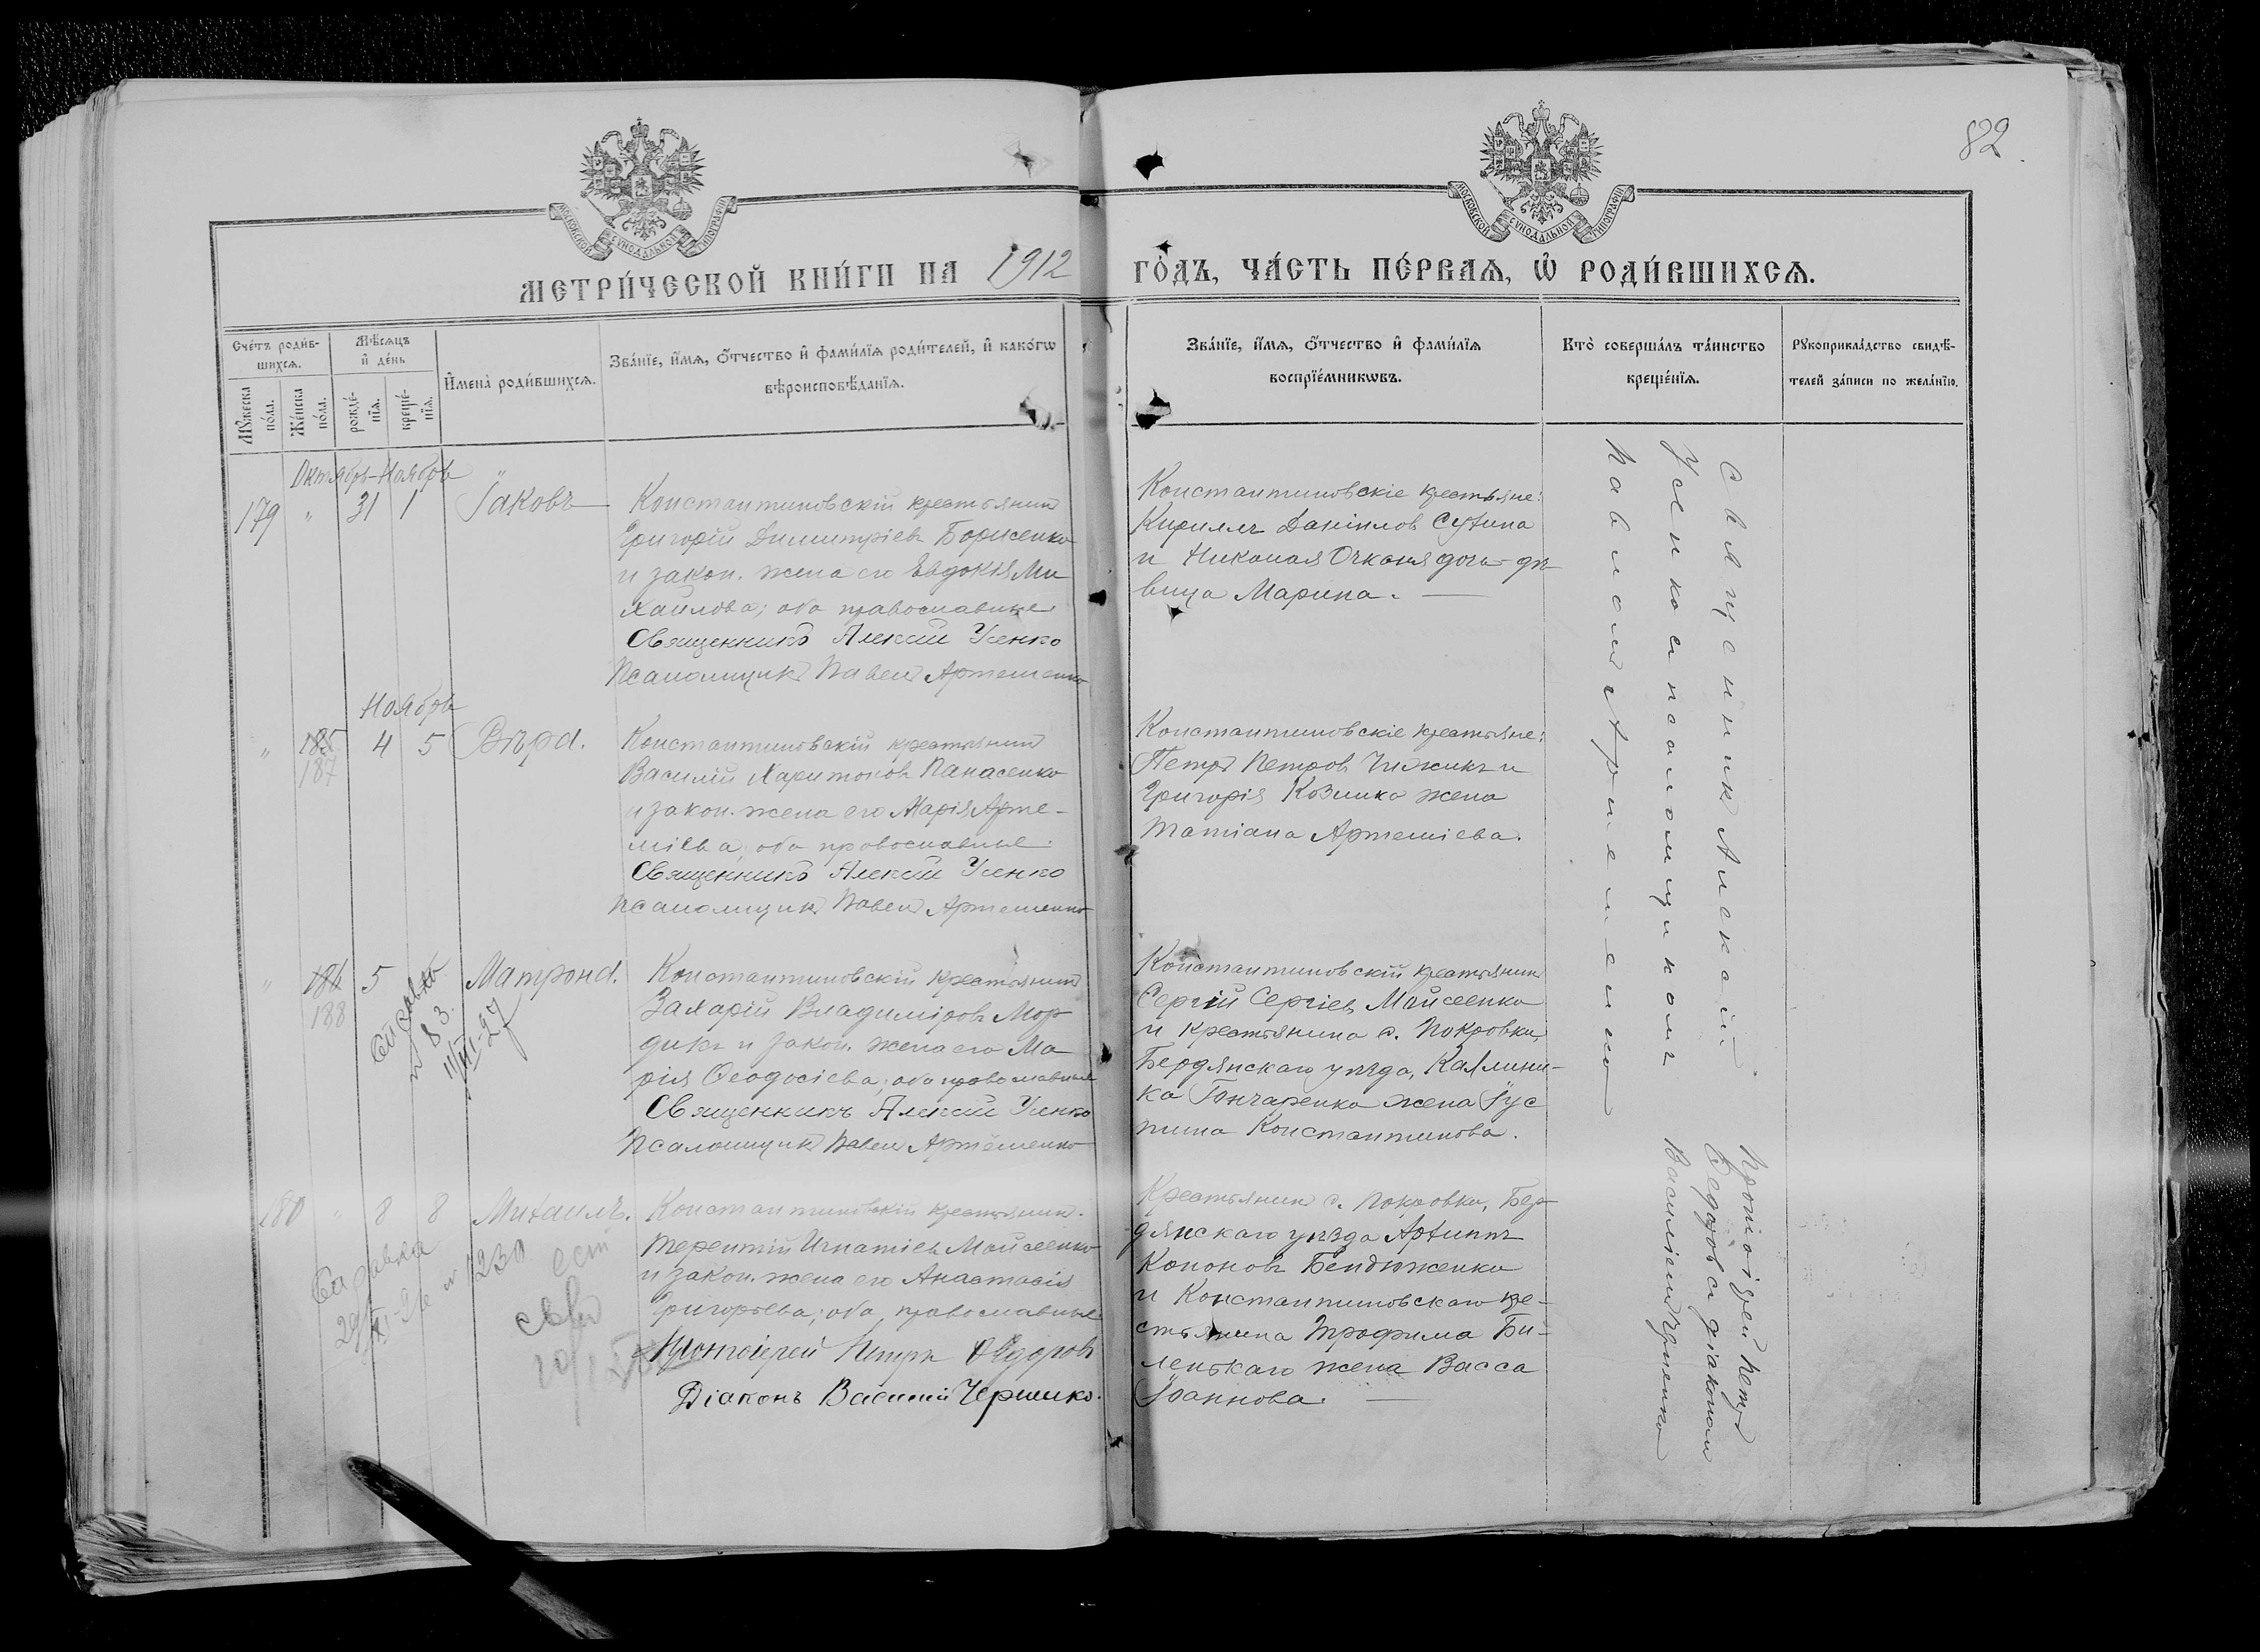 82.
МОСКОВСКОЙ СѴНОДАЛЬНОЙ ТИПОГРАФІИ
МОСКОВСКОЙ СѴНОДАЛЬНОЙ ТИПОГРАФІИ
МЕТРИ́ЧЕСКОЙ КНИ́ГИ НА 1912 ГО́ДЪ, ЧА́СТЬ ПЕ́РВАѦ, Ѡ҆ РОДИ́ВШИХСѦ.
Сче́тъ роди́в-
шихсѧ.
Мꙋ́жеска по́ла.
Же́нска по́ла.
Мѣ́сѧцъ
и҆ де́нь
рожде́-
нїѧ.
креще́-
нїѧ.
И҆мена̀ роди́вшихсѧ.
Зва́нїе, и҆́мѧ, ѻ҆́тчество и҆ фами́лїѧ роди́телей, и҆ како́гѡ
вѣроисповѣ́данїѧ.
Зва́нїе, и҆́мѧ, ѻ҆́тчество и҆ фами́лїѧ
воспрїе́мникѡвъ.
Кто̀ соверша́лъ та́инство
креще́нїѧ.
Рꙋкоприкла́дство свидѣ́-
телей за́писи по жела́нїю.
Октябрь-Ноябрь
179 " 31 1 Іаковъ
Константиновскій крестьянинъ
Григорій Димитріевъ Борисенко
и закон. жена его Евдокія Ми
хайлова; оба православные
Священникъ Алексій Усенко
Псаломщикъ Павелъ Артеменко
Константиновскіе крестьяне:
Кириллъ Даніиловъ
и Николая дочь дѣ-
вица Марина.
Ноябрь
" 185 187 4 5 Вѣра.
Константиновскій крестьянинъ
Василій Харитоновъ Панасенко
и закон. жена его Марія Арте-
міева, оба православные.
Священникъ Алексій Усенко
Псаломщикъ Павелъ Артеменко
Константиновскіе крестьяне:
Петръ Петровъ Чижикъ и
Григорія Козинка жена
Татіана Артеміева.
" 186 188 5 Матрона.
Константиновскій крестьянинъ
Захарій Владиміровъ Мор
дикъ и закон. жена его Ма
рія Ѳеодосіева; оба православные
Священникъ Алексій Усенко
Псаломщикъ Павелъ Артеменко
Константиновскій крестьянинъ
Сергій Сергіевъ Мойсеенко
и крестьянина с. Покровки,
Бердянскаго уѣзда, Каллини-
ка Гончаренко жена Іус
тина Константинова.
Справка
№ 83
11/III-27
180 " 8 8 Михаилъ.
Константиновскій крестьянин.
Терентій Игнатіевъ Мойсеенко
и закон. жена его Анастасія
Григорьева; оба православные
Протоіерей Петръ Ѳедоровъ
Діаконъ Василій
Крестьянинъ с. Покровки, Бер-
дянскаго уѣзда
Кононовъ Бендюженко
и Константиновскаго кре-
стьянина Трофима Би-
ленькаго жена Васса
Іоаннова.
Справка
№ 1230
Священникъ Алексій
Усенко съ псаломщикомъ
Павломъ Артеменко
Протоіерей Петръ
Ѳедоровъ съ діакономъ
Василіемъ